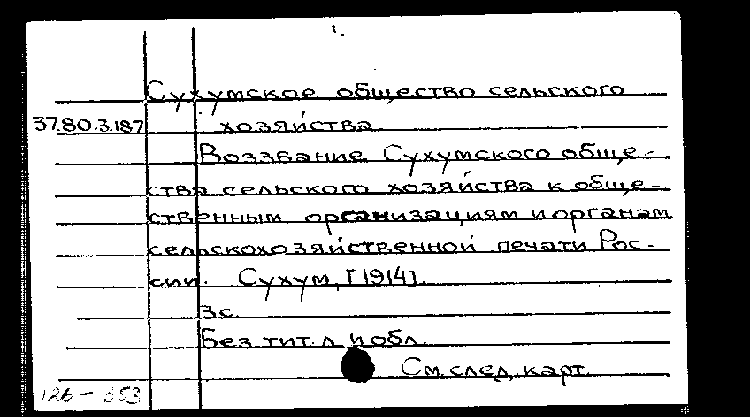 1.
Сухумское общество сельского
37.80.3.187 хозяйства
Воззвание Сухумского обще-
ства сельского хозяйства к обще-
ственным организациям и органам
сельскохозяйственной печати Рос-
сии. Сухум, [1914].
3с.
Без тит. л. и обл.
См. след. карт.
126 -